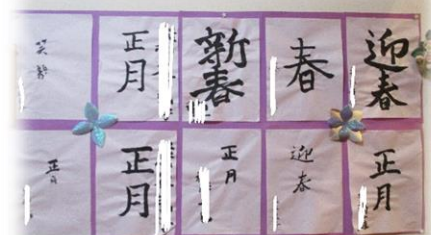 正月
新春
春
迎春
正月
正月
正月
迎春
正月